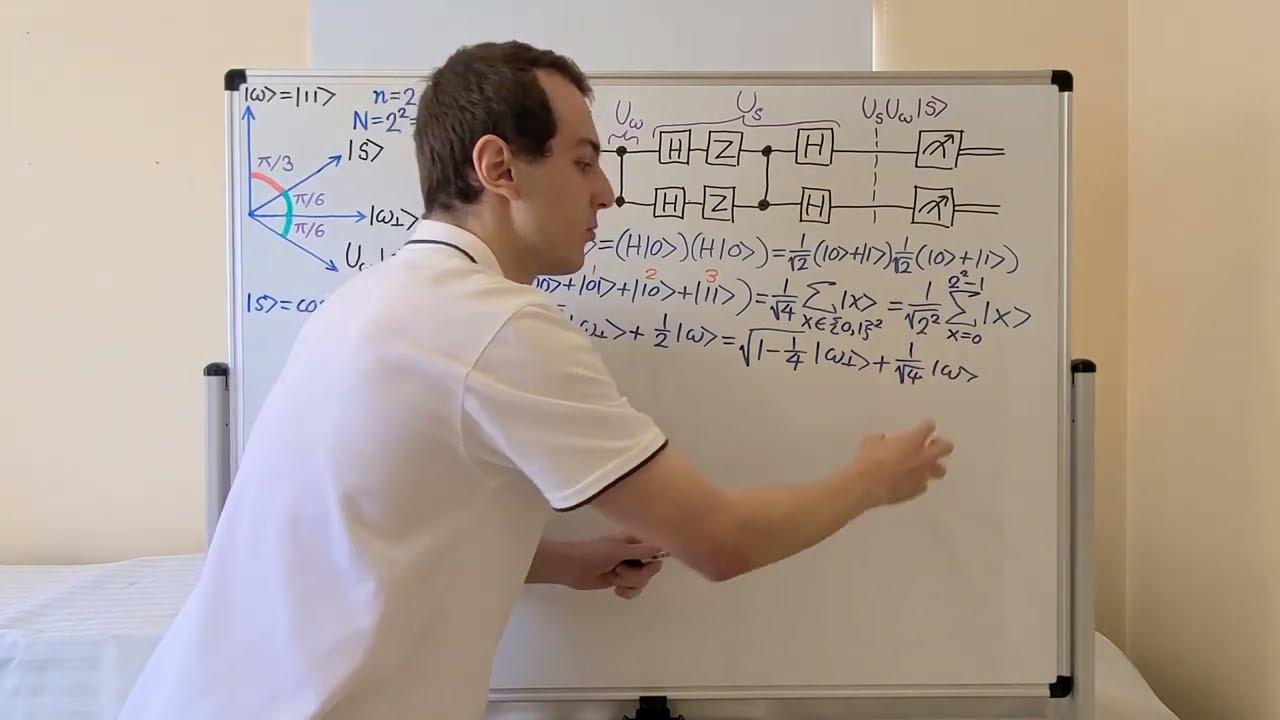 |ω⟩=|11⟩
n=2
N=2²=
|S⟩
π/3
π/6
π/6
|ω⊥⟩
|S⟩=cos
U_ω
U_S
U_S U_ω|S⟩
H Z H
H Z H
⟩=(H|0⟩)(H|0⟩)=1/√2(|0⟩+|1⟩)1/√2(|0⟩+|1⟩)
1 2 3
00⟩+|01⟩+|10⟩+|11⟩)=1/√4 ∑_{x∈{0,1}²}|x⟩=1/√2² ∑_{x=0}^{2²-1}|x⟩
|ω⊥⟩+1/2|ω⟩=√(1-1/4)|ω⊥⟩+1/√4|ω⟩